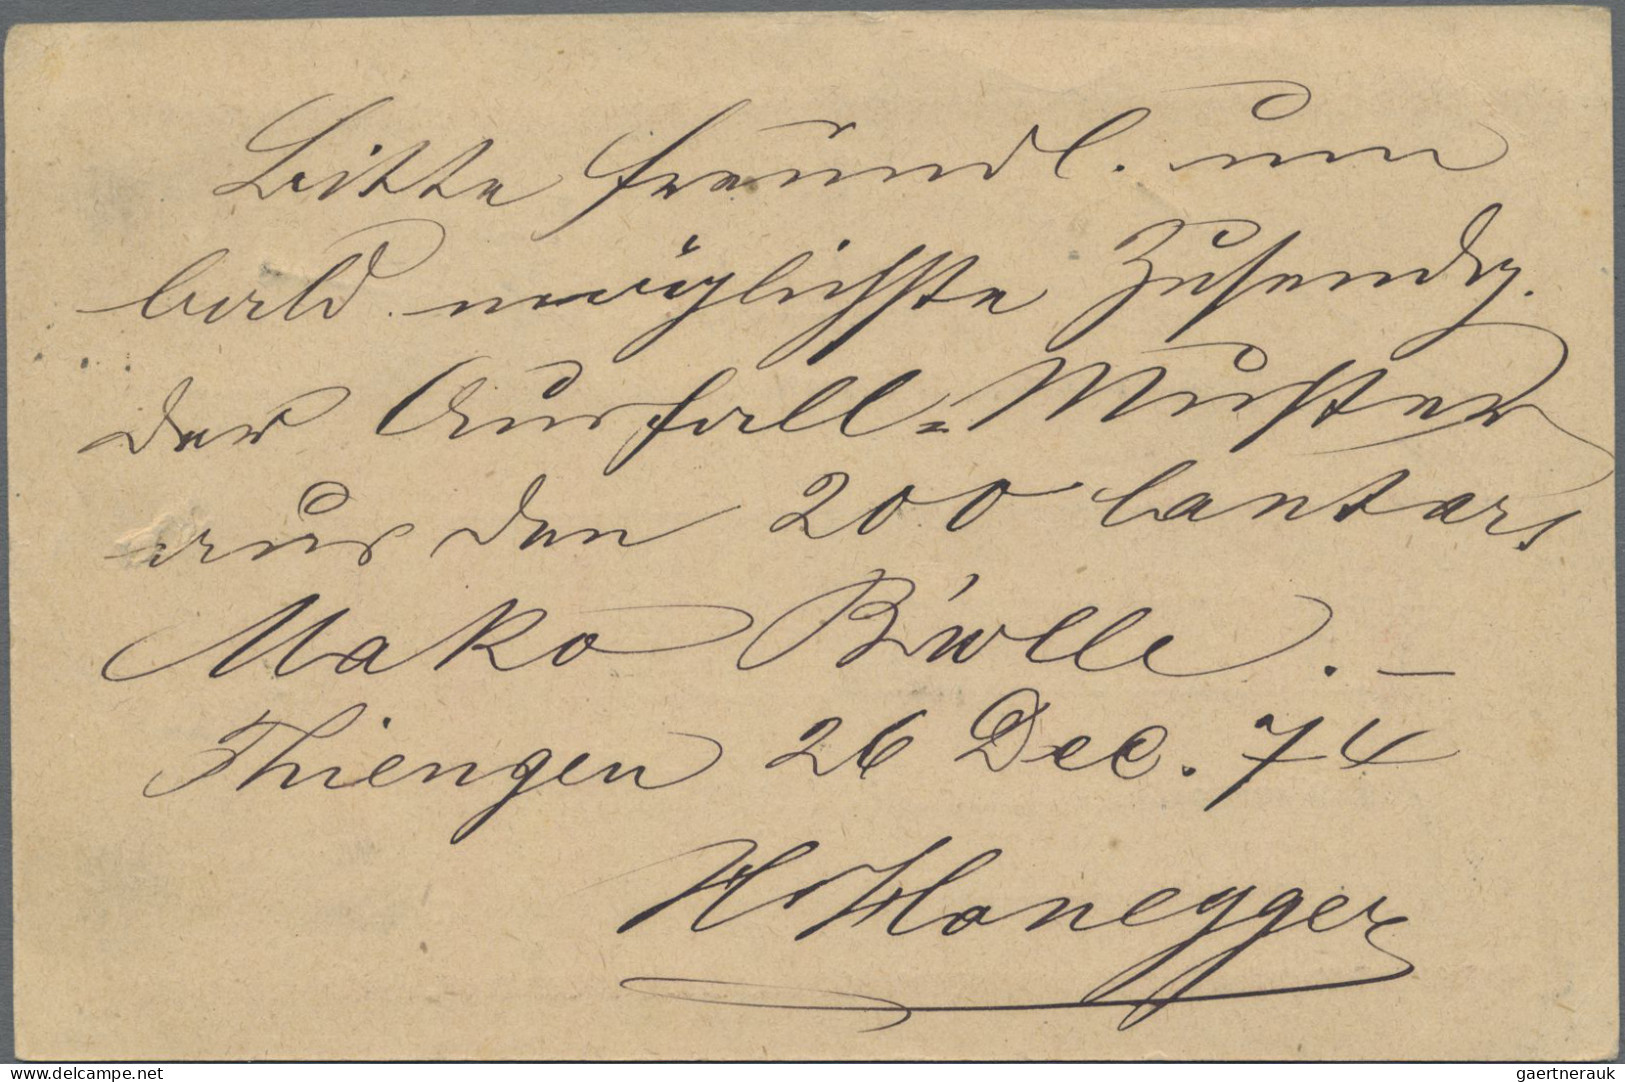 Bitte freundl. um
bald möglichste Zusendg.
der Ausfall-Muster
aus den 200 Cantars
Mako B'wolle. —
Thiengen 26 Dec. 74
Honegger
www.delcampe.net
gaertnerauk